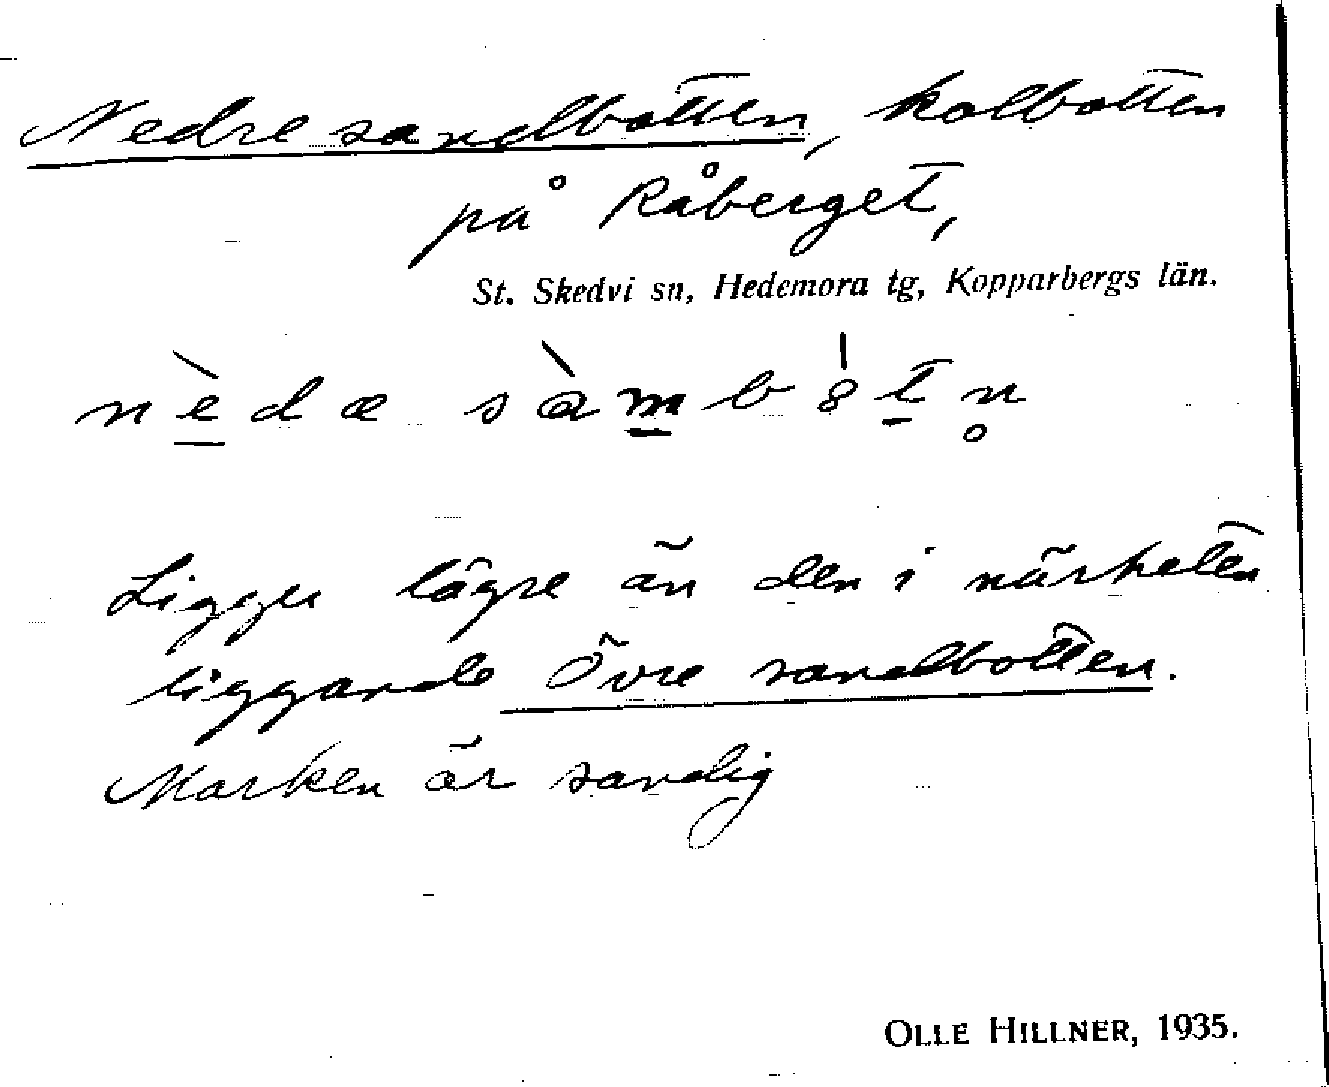 Nedre sandbotten, kolbotten
på Råberget,
St. Skedvi sn, Hedemora tg, Kopparbergs län.
nèdæ sàmbȣ́tn̥
Ligger lägre än den i närheten
liggande Övre sandbotten.
Marken är sandig
OLLE HILLNER, 1935.